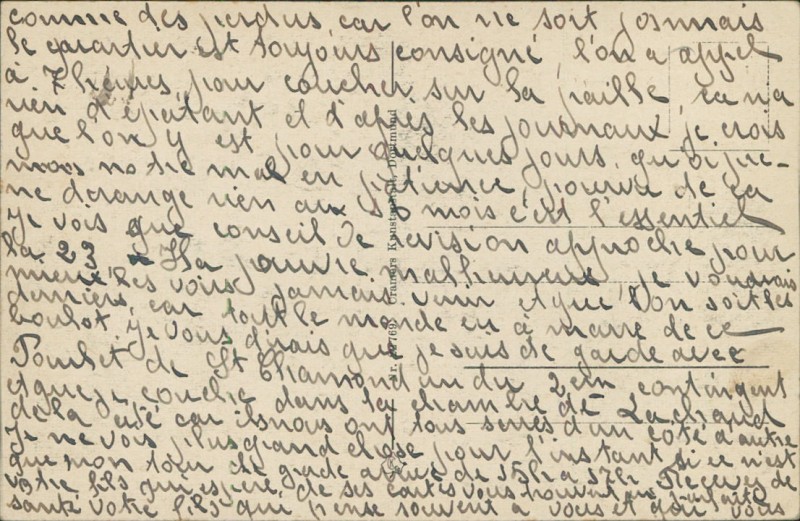 comme des perdus, car l'on ne soit jamais
le quartier est toujours consigné, l'on a appel
à 7 heures, pour coucher sur la paille, ca na
rien d'épatant et d'après les journaux je crois
que l'on y est pour quelques jours, qu'oi pre-
nons notre mal en patience, pourvu de ca
ne dérange rien aux 18 mois c'est l'essentiel
Je vois que conseil de revision approche pour
la 23 Ha pauvre malheureux je voudrais
les voir jamais venir et que l'on soit les
derniers, car tout le monde en à marre de ce
boulot. Je vous dirais que je suis de garde avec
Poulet de St Chamond un du 2em contingent
et que je couche dans la chambre de Lachaud
de la cité car ils nous ont tous sérrés d'un coté à autre
Je ne vois plus grand chose pour l'instant si ce n'est
que mon tour de garde arrive de 15h a 17h. Recevez de
votre fils qui espère de ses cartes vous trouvent en parfaite
santé votre fils qui pense souvent a vous et dont vous
Nr. Cramers Kunstanstalt, Dortmund